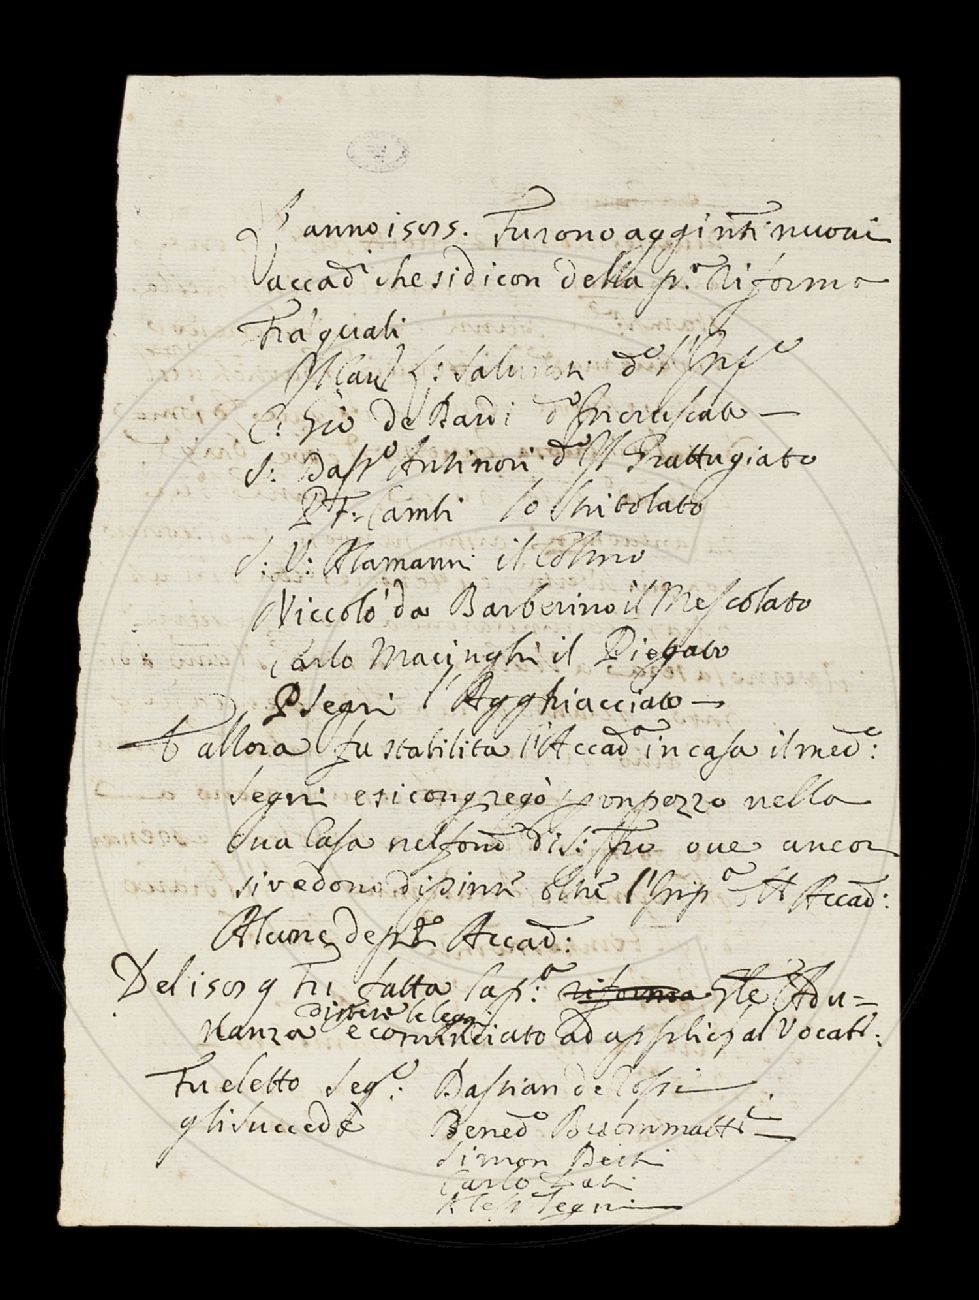 L'anno 1585. Furono aggiunti nuovi
accad.i che si dicon della p.a Riforma
Fra quali
Salviati d.o l'Inf.o
Gio de Bardi d.o Incruscato —
S: Bast.o Antinori d.o Il Grattugiato
P F: Cambi lo Stritolato
S: V: Alamanni il Colmo
Niccolò da Barberino il Mescolato
Carlo Macinghi il Piegato
P Segni l'Agghiacciato —
E allora fu stabilita l'Accad.a in casa il med.o:
Segni e si congregò p un pezzo nella
sua Casa nel fond. di S: ove ancor
si vedono dipinte oltre l'Imp.a dell' Accad:
Alcune de p.i Accad:
Del 1589 Fu fatta la p.a riforma Gle Adu=
distese le leggi
nanza e cominciato ad applic. al Vocab.:
Fu eletto Seg.o: Bastian de Rossi
gli succedè Bened.o Buommatti —
Simon Berti
Carlo Dati
Aless. Segni